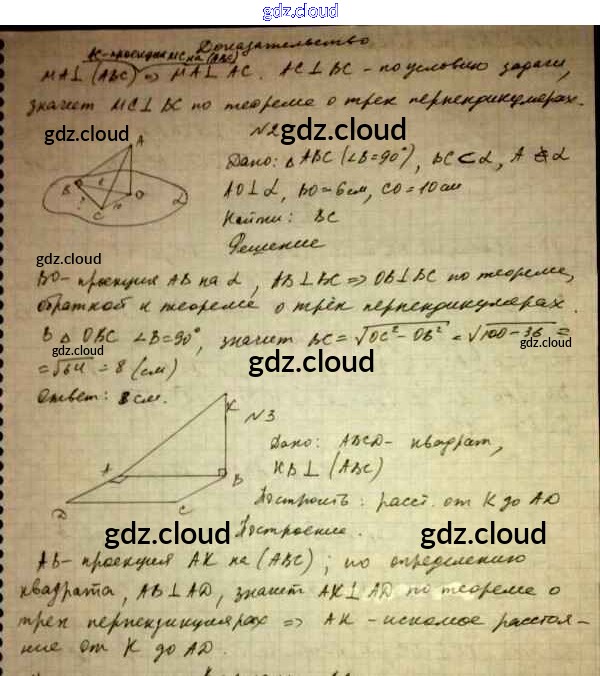 gdz.cloud
Доказательство
K-проекция MC на (ABC)
MA⊥(ABC) => MA⊥AC. AC⊥BC - по условию задачи,
значит MC⊥BC по теореме о трех перпендикулярах.
gdz.cloud gdz.cloud
N2
A
B
6
O
?
10
C
α
Дано: △ABC (∠B=90°), BC⊂α, A ∉ α
AO⊥α, BO=6см, CO=10см
Найти: BC
Решение
gdz.cloud
gdz.cloud
BO-проекция AB на α, AB⊥BC => OB⊥BC по теореме,
обратной к теореме о трёх перпендикулярах.
В △ OBC ∠B=90°, значит BC = √OC²-OB² = √100-36 =
gdz.cloud gdz.cloud gdz.cloud
= √64 = 8 (см)
Ответ: 8 см.
K
N3
A
B
D
C
Дано: ABCD- квадрат,
KB⊥(ABC)
Построить: расст. от K до AD
Построение.
gdz.cloud gdz.cloud
AB-проекция AK на (ABC); по определению
квадрата, AB⊥AD, значит AK⊥AD по теореме о
трех перпендикулярах => AK - искомое расстоя-
ние от K до AD.
gdz.cloud gdz.cloud